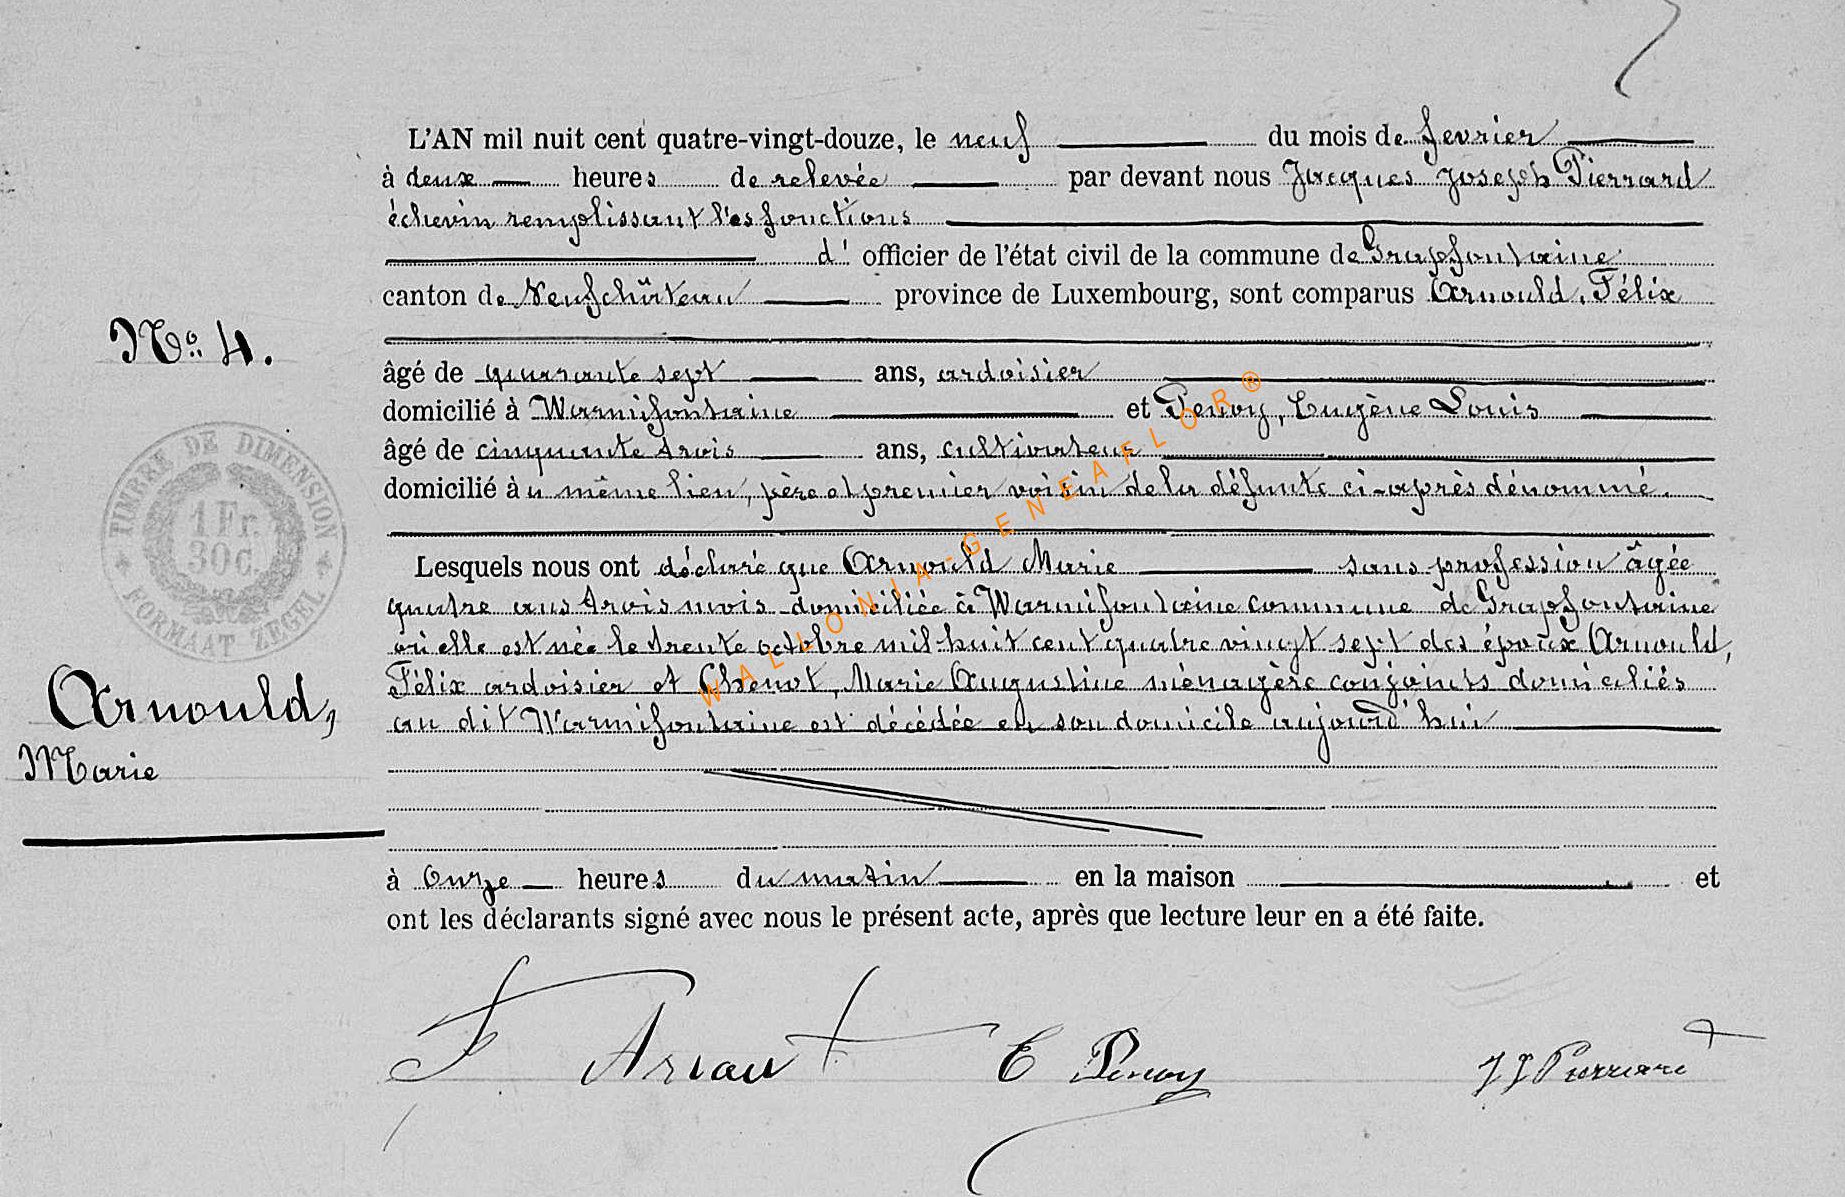 L'AN mil huit cent quatre-vingt-douze, le neuf du mois de fevrier
à deux heures de relevée par devant nous Jacques Joseph Pierrard
échevin remplissant les fonctions
d' officier de l'état civil de la commune de Grapfontaine
canton de Neufchâteau province de Luxembourg, sont comparus Arnould, Félix
No 4.
âgé de quarante sept ans, ardoisier
domicilié à Warmifontaine et Penoy, Eugène Louis
âgé de cinquante trois ans, cultivateur
domicilié àu même lieu, père et premier voisin de la défunte ci-après dénommé.
TIMBRE DE DIMENSION
1 Fr.
30 c.
FORMAAT ZEGEL
Lesquels nous ont déclaré que Arnould Marie sans profession âgée
quatre ans trois mois domiciliée à Warmifontaine commune de Grapfontaine
où elle est née le trente octobre mil huit cent quatre vingt sept des époux Arnould,
Félix ardoisier et Chenot, Marie Augustine ménagère conjoints domiciliés
au dit Warmifontaine est décédée en son domicile aujourd'hui
Arnould,
Marie
à Onze heures du matin en la maison et
ont les déclarants signé avec nous le présent acte, après que lecture leur en a été faite.
F E Penoy JJ Pierrard
WALLONIA-GENEAFLOR®